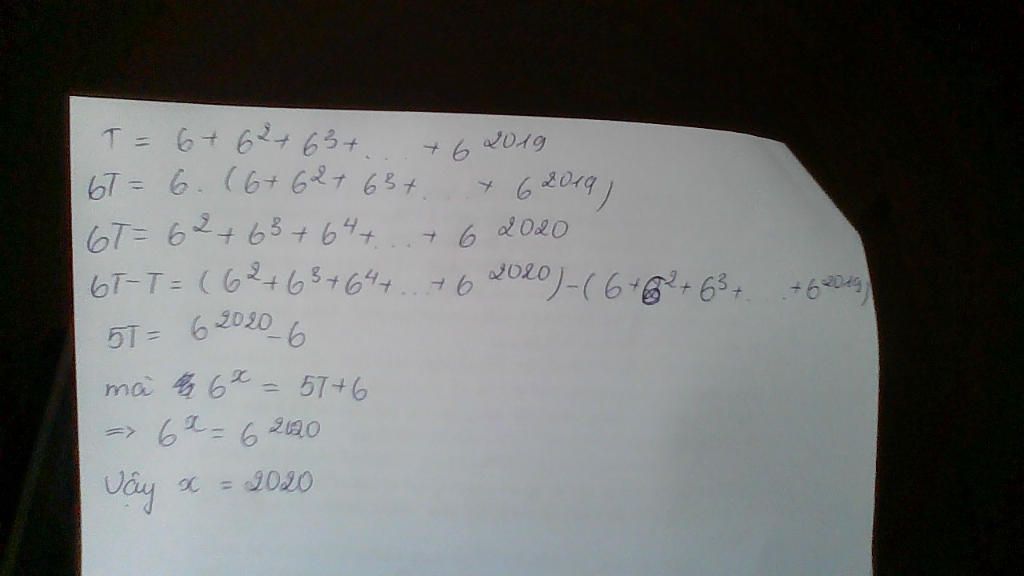 T = 6 + 6² + 6³ + ... + 6²⁰¹⁹
6T = 6 . (6 + 6² + 6³ + ... + 6²⁰¹⁹)
6T = 6² + 6³ + 6⁴ + ... + 6²⁰²⁰
6T - T = (6² + 6³ + 6⁴ + ... + 6²⁰²⁰) - (6 + 6² + 6³ + ... + 6²⁰¹⁹)
5T = 6²⁰²⁰ - 6
mà 6ˣ = 5T + 6
=> 6ˣ = 6²⁰²⁰
Vậy x = 2020